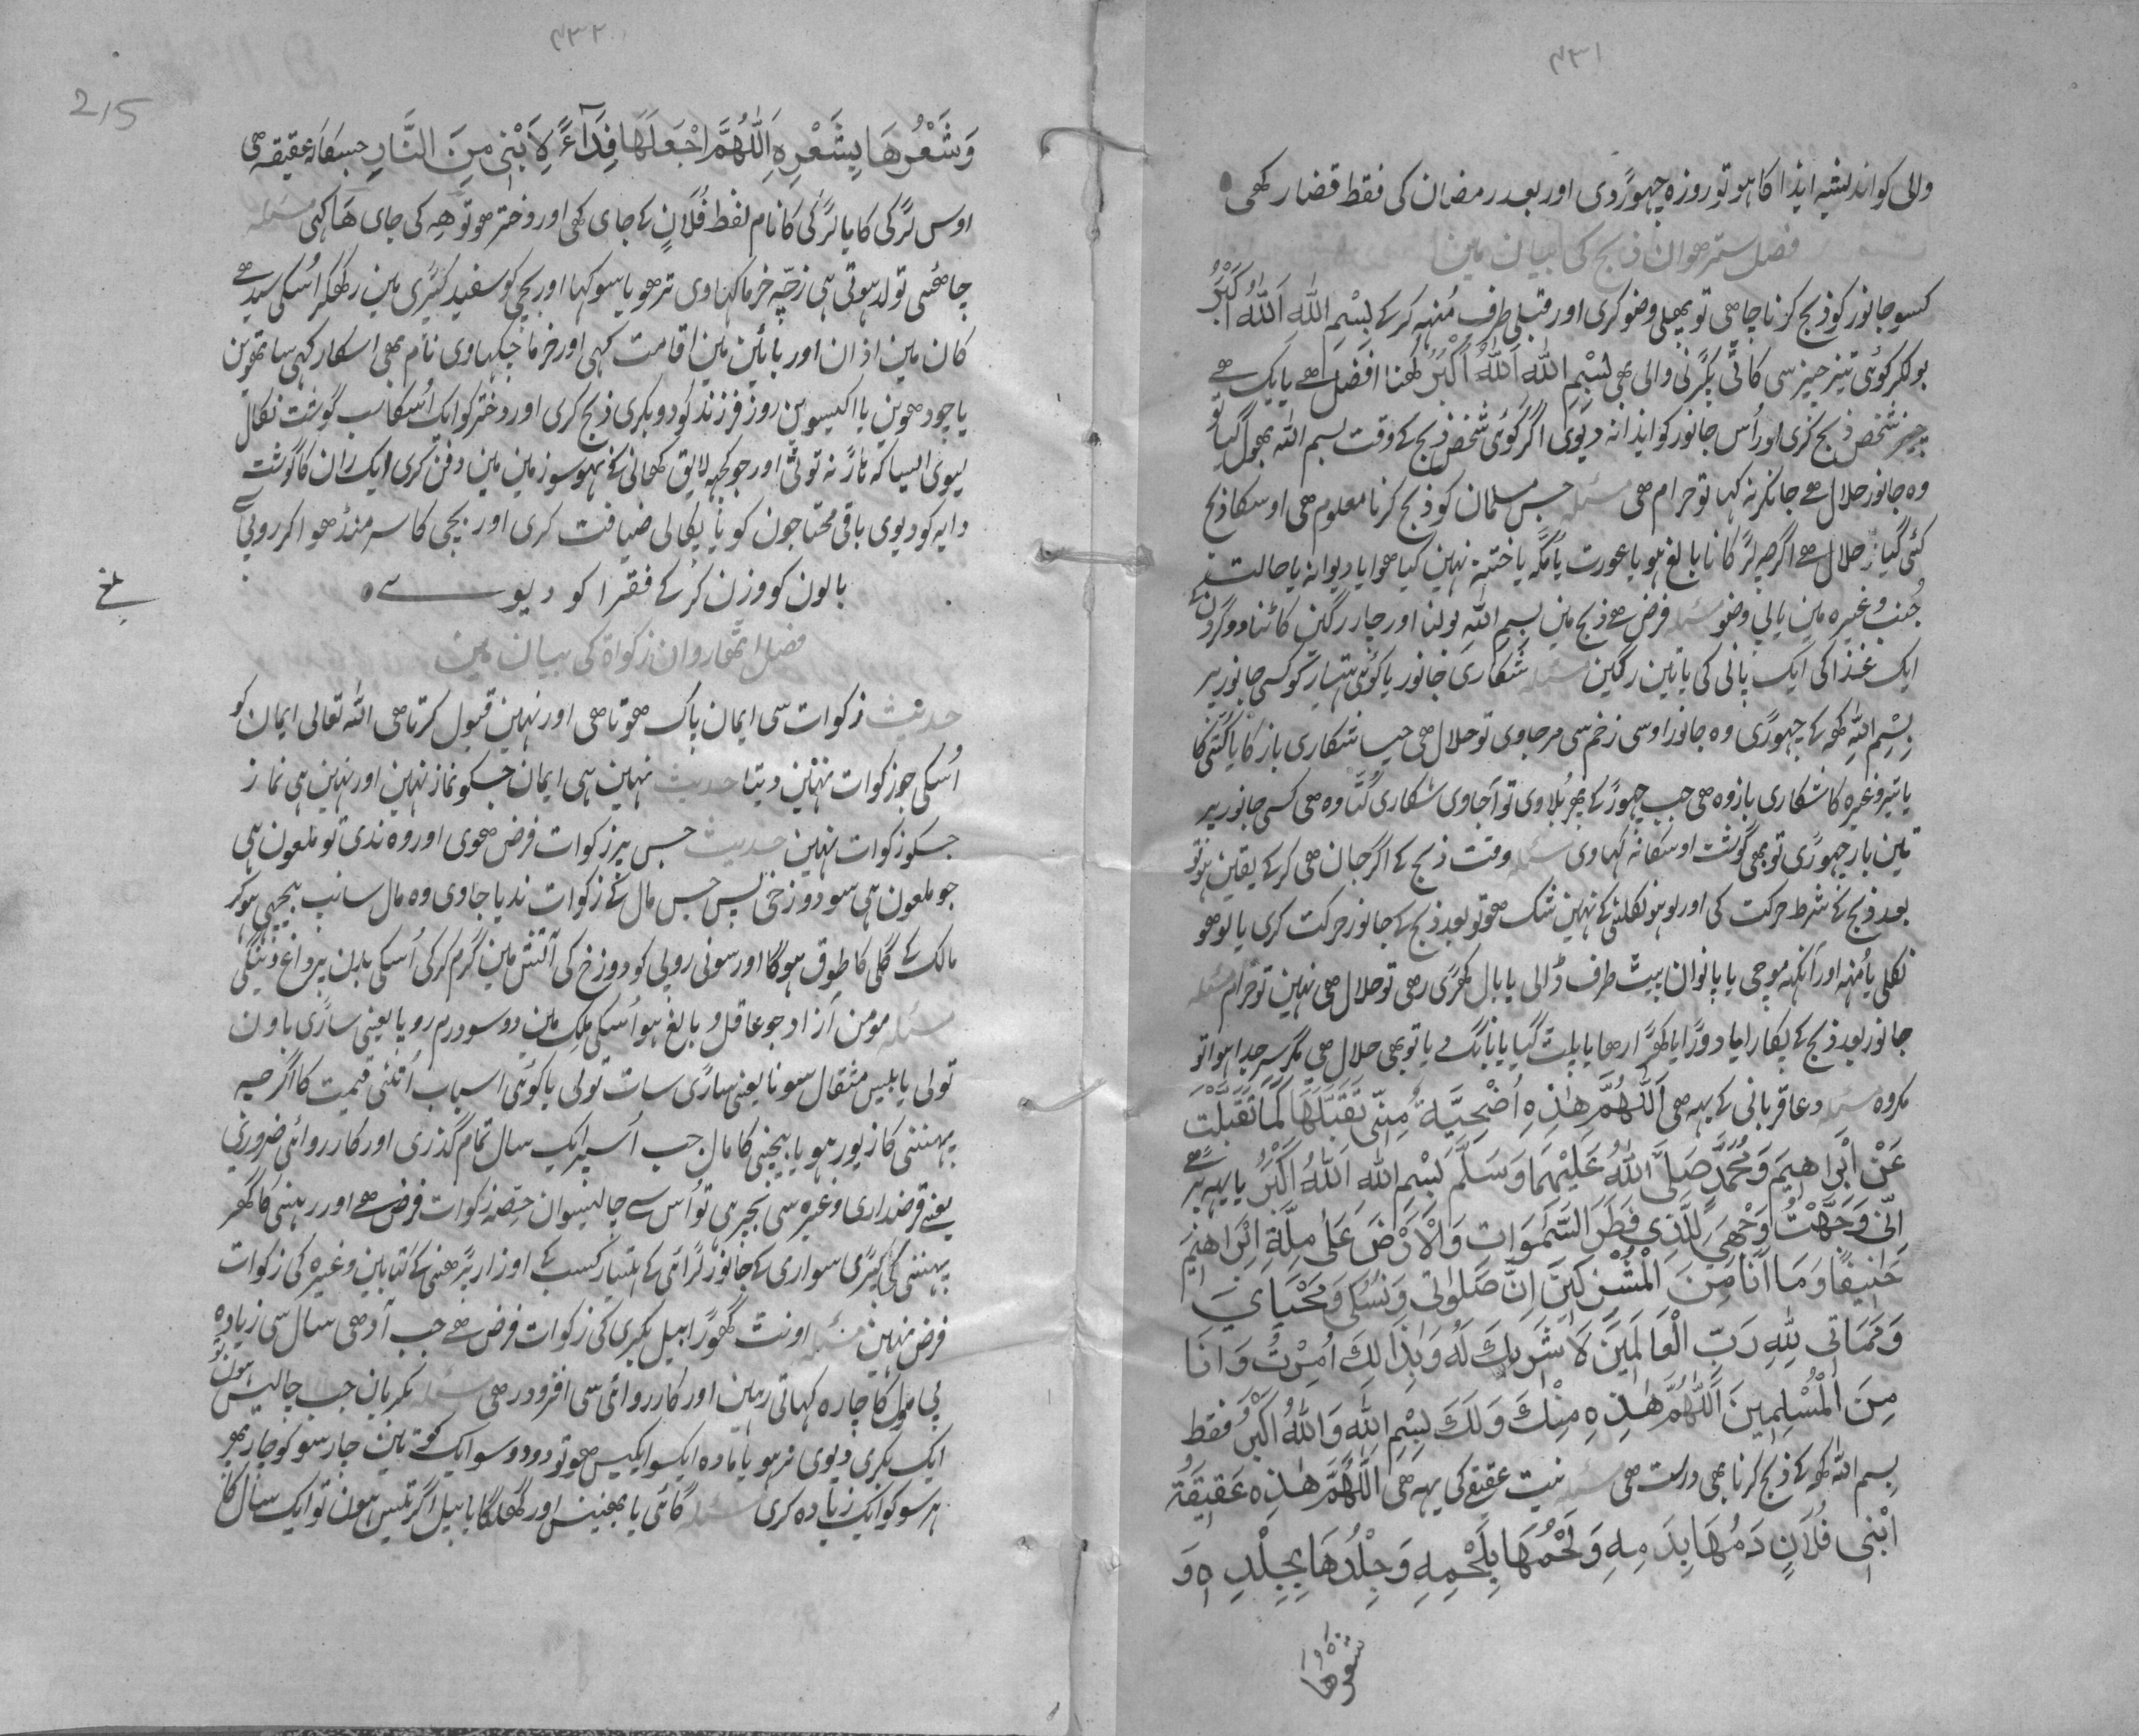 ۴۳۱
والی کو اندیشہ ایذا کا ہو تو روزہ چھوڑدی اور بعد رمضان کی فقط قضا رکھی
فصل سترھوان ذبح کی بیان مین
کسو جانور کو ذبح کرنا چاھی تو پھلی وضو کری اور قبلی طرف مُنہہ کر کے بِسْمِ اللّٰہِ اَللّٰہُ اَکْبَرُ
بولکر کوئی تیز چیز سی کاٹی پکڑنی والی بھی بِسْمِ اللّٰہِ اَللّٰہُ اَکْبَرُ کھنا افضل ھے یا یک ھے
چیز شخص ذبح کری اور اُس جانور کو ایذا نہ دیوی اگر کوئی شخص ذبح کے وقت بسم اللہ بھول گیا تو
وہ جانور حلال ھے جانکر نہ کہا تو حرام ھی مسئلہ جس مسلمان کو ذبح کرنا معلوم ھی اوسکا ذبح
کئی گیا حلال ھے اگرچہ لڑکا نابالغ ہو یا عورت یا ختنہ نہین کیا ھوا یا دیوانہ یا حالت
جُنب وغیرہ مین یا بی وضو مسئلہ فرض ھے ذبح مین بسم اللہ بولنا اور چار رگین کاٹنا دو گردن کے
ایک غذا کی ایک پانی کی یا تین رگین مسئلہ شکاری جانور یا کوئی ہتیار کو کسی جانور پر
بِسْمِ اللّٰہِ کہہ کے چھوڑی وہ جانور اوسی زخم سی مرجاوی تو حلال ھی جیسا شکاری باز کا یا کُتّی کا
یا تیر وغیرہ کا شکاری باز وہ ھی جب چھوڑ کے پھر بُلاوی تو آجاوی شکاری کُتّا وہ ھی کسی جانور پر
تین بار چھوڑی تو بھی گوشت اوسکا نہ کھاوی مسئلہ وقت ذبح کے اگر جان ھی کر کے یقین ہو تو
بعد ذبح کے شرط حرکت کی اور لوہو نکلنی کے نہین شک ھو تو بعد ذبح کے جانور حرکت کری یا لوھو
نکلی یا مُنہہ اور آنکہہ موچی یا پانوان پیٹ طرف ڈالی یا بال کھڑی رھی تو حلال ھی نہین تو حرام مسئلہ
جانور بعد ذبح کے پکارا یا دوڑا یا کھڑا رھا یا پلٹ گیا یا بانگ دیا تو بھی حلال ھی مگر سر جدا ہوا تو
مکروہ مسئلہ دعا قربانی کے یہہ ھی اَللّٰہُمَّ ھٰذِہِ اُضْحِیَّۃٌ مِنِّی تَقَبَّلْھَا کَمَا تَقَبَّلْتَ
عَنْ اِبْرَاھِیْمَ وَمُحَمَّدٍ صَلَّی اللّٰہُ عَلَیْہِمَا وَسَلَّمَ بِسْمِ اللّٰہِ اَللّٰہُ اَکْبَرُ یا یہہ پڑھے
اِنِّی وَجَّھْتُ وَجْھِیَ لِلَّذِی فَطَرَ السَّمٰوَاتِ وَالْاَرْضَ عَلٰی مِلَّۃِ اِبْرَاھِیْمَ
حَنِیْفًا وَمَا اَنَا مِنَ الْمُشْرِکِیْنَ اِنَّ صَلٰوتِی وَنُسُکِی وَمَحْیَایَ
وَمَمَاتِی لِلّٰہِ رَبِّ الْعَالَمِیْنَ لَا شَرِیْکَ لَہُ وَبِذَالِکَ اُمِرْتُ وَاَنَا
مِنَ الْمُسْلِمِیْنَ اَللّٰہُمَّ ھٰذِہِ مِنْکَ وَلَکَ بِسْمِ اللّٰہِ وَاللّٰہُ اَکْبَرُ فقط
بسم اللہ کہہ کے ذبح کرنا بھی درست ھی مسئلہ نیت عقیقی کی یہہ ھی اَللّٰہُمَّ ھٰذِہِ عَقِیْقَۃُ
ابْنِی فُلَانٍ دَمُھَا بِدَمِہِ وَلَحْمُھَا بِلَحْمِہِ وَجِلْدُھَا بِجِلْدِہِ وَ
شَعْرُھَا
۴۳۲
215
وَشَعْرُھَا بِشَعْرِہِ اَللّٰہُمَّ اجْعَلْھَا فِدَآءً لِاِبْنِی مِنَ النَّارِ جسکا عقیقہ ھی
اوس لڑکی کا یا لڑکی کا نام لفظ فُلَانٍ کے جای کھی اور دختر ھو تو ھِہِ کی جای ھَا کہی مسئلہ
چاھئی تولد ہوتی ہی زچّہ خرما کھاوی تر ھو یا سوکھا اور بچی کو سفید کپڑی مین رکھکر اُسکی سیدھے
کان مین اذان اور بائین مین اقامت کہی اور خرما چکھاوی نام بھی اسکا رکھی ساتھوین
یا چودھوین یا اکیسوین روز فرزند کو دو بکری ذبح کری اور دختر کو ایک اُسکا سب گوشت نکال
لیوی ایسا کہ ہاڑ نہ توٹی اور جو کچھ لایق کھانی کے نہو سو زمین مین دفن کری ایک ران کا گوشت
دایہ کو دیوی باقی محتاجون کو یا پکا لی ضیافت کری اور بچی کا سر منڈھوا کر روپی سے
بالون کو وزن کر کے فقرا کو دیوے
فصل اٹھاروان زکواۃ کی بیان مین
حدیث زکوات سی ایمان پاک ھوتا ھی اور نہین قبول کرتا ھی اللہ تعالی ایمان کو
اُسکی جو زکوات نہین دیتا حدیث نہین ہی ایمان جسکو نماز نہین اور نہین ہی نماز
جسکو زکوات نہین حدیث جس پر زکوات فرض ھوی اور وہ ندی تو ملعون ہی
جو ملعون ہی سو دوزخی پس جس مال کے زکوات ندیا جاوی وہ مال سانپ بچھی ہوکر
مالک کے گلی کا طوق ہوگا اور سونی روپی کو دوزخ کی آتش مین گرم کر کی اُسکی بدن پر داغ دینگی
مسئلہ مومن آزاد جو عاقل و بالغ ہو اُسکی ملک مین دو سو درم روپا یعنی ساڑی باون
تولی یا بیس مثقال سونا یعنی ساڑی سات تولی یا کوئی اسباب اُتنی قیمت کا اگرچہ
پہننی کا زیور ہو یا بیچنی کا مال جب اُسپر ایک سال تمام گذری اور کارروائی ضروری
یعنے قرضداری وغیرہ سی بچری تو اُس سے چالیسوان حِصّہ زکوات فرض ھے اور رہنی کا گھر
پہننی کی کپڑی سواری کے جانور لڑائی کے ہتیار کسب کے اوزار پڑھنی کے کتابین وغیرہ کی زکوات
فرض نہین مسئلہ اونٹ گھوڑا بیل بکری کی زکوات فرض ھے جب آدھی سال سی زیادہ
بی مول کا چارہ کہاتی رہین اور کارروائی سی افزود رھی مسئلہ بکریان جب چالیس ہون تو
ایک بکری دیوی نر ہو یا مادہ ایکسو ایکیس ھو تو دو دو سو ایک کو تین چار سو کو چار پھر
ہر سو کو ایک زیادہ کری مسئلہ گائی یا بھینس اور گھلگا یا بیل اگر تیس ہون تو ایک سال کا